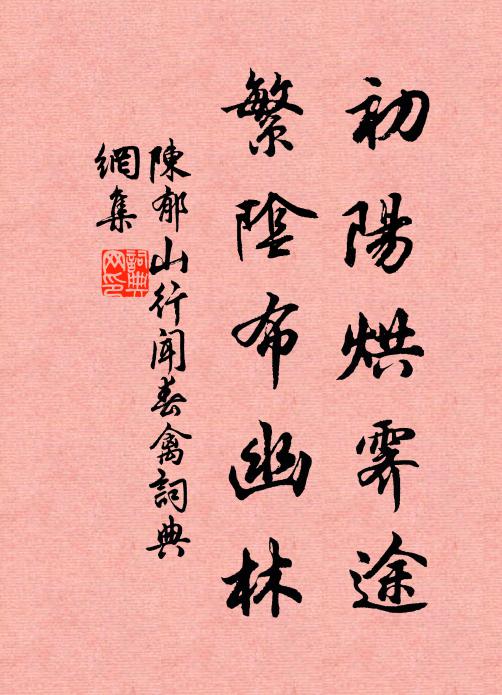 初陽烘霽途
繁陰布幽林
陳郁山行聞春禽詞典
網集
詞典
网印